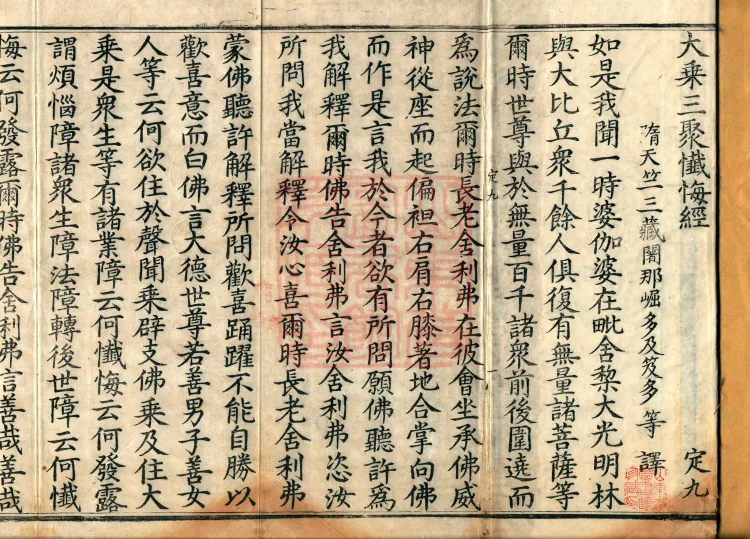 大乘三聚懺悔經 定九
隋天竺三藏闍那崛多及笈多等譯
如是我聞一時婆伽婆在毗舍黎大光明林
與大比丘衆千餘人俱復有無量諸菩薩等
爾時世尊與於無量百千諸衆前後圍遶而
定九 一
爲說法爾時長老舍利弗在彼會坐承佛威
神從座而起偏袒右肩右膝著地合掌向佛
而作是言我於今者欲有所問願佛聽許爲
我解釋爾時佛告舍利弗言汝舍利弗恣汝
所問我當解釋令汝心喜爾時長老舍利弗
蒙佛聽許解釋所問歡喜踊躍不能自勝以
歡喜意而白佛言大德世尊若善男子善女
人等云何欲住於聲聞乘辟支佛乘及住大
乘是衆生等有諸業障云何懺悔云何發露
謂煩惱障諸衆生障法障轉後世障云何懺
悔云何發露爾時佛告舍利弗言善哉善哉